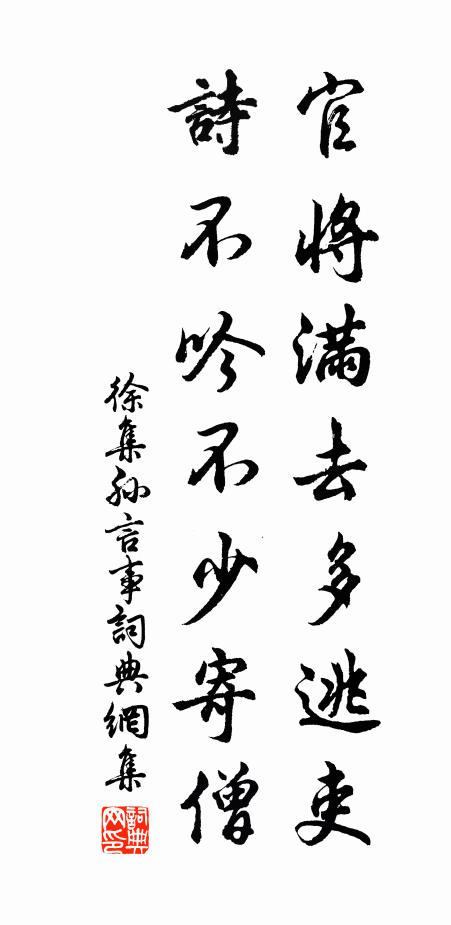 官將滿去多逃吏
詩不吟不少寄僧
徐集孫言事詞典網集
詞典网印